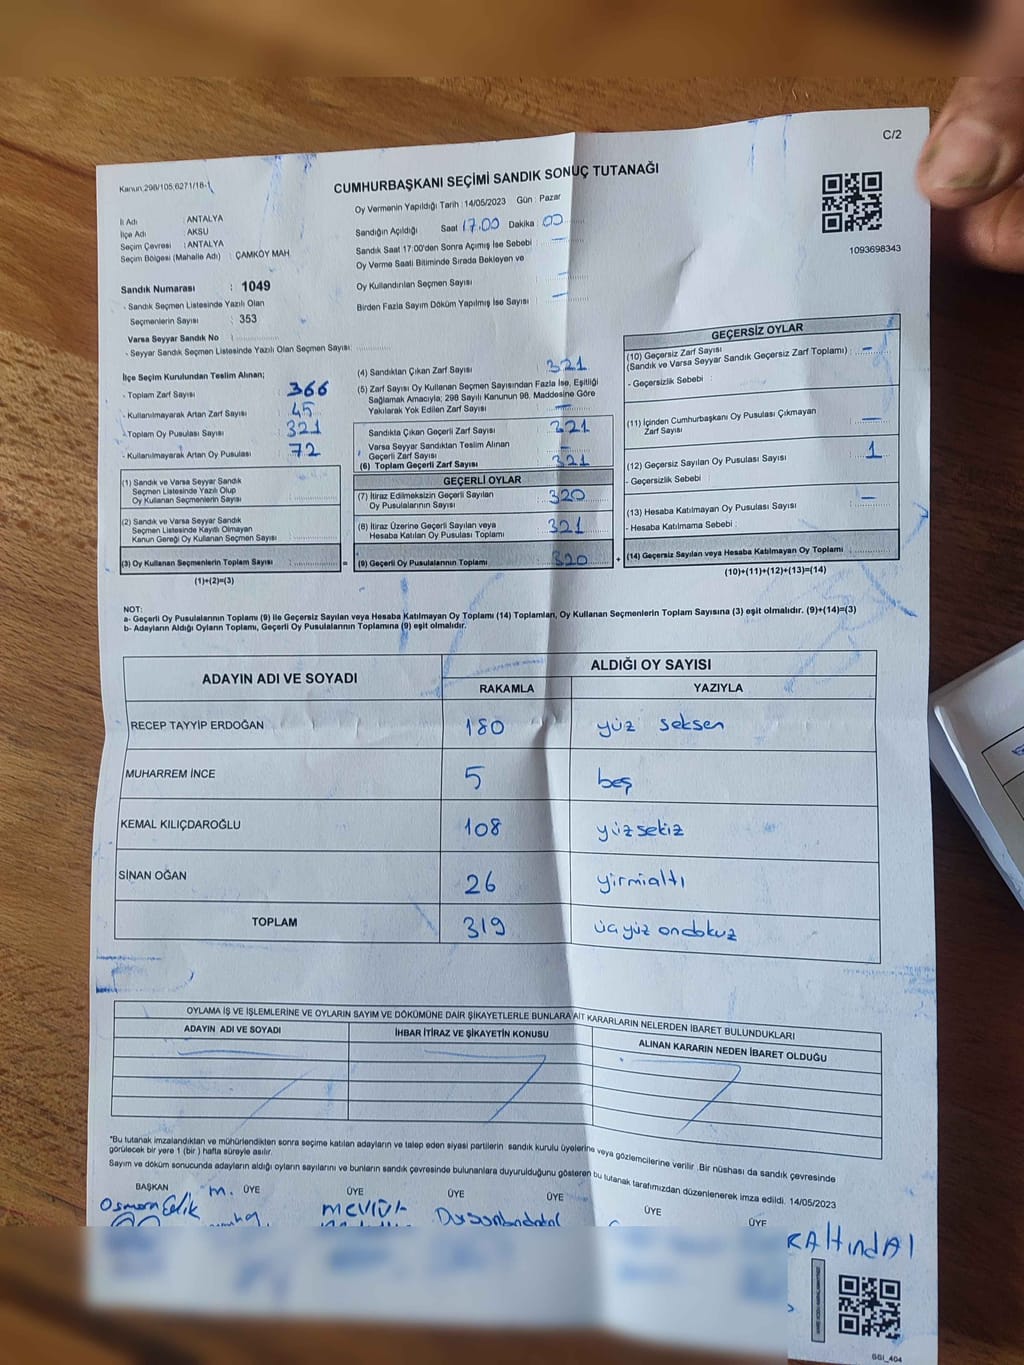 C/2
Kanun.298/105,6271/18-1
CUMHURBAŞKANI SEÇİMİ SANDIK SONUÇ TUTANAĞI
1093698343
İl Adı : ANTALYA
İlçe Adı : AKSU
Seçim Çevresi : ANTALYA
Seçim Bölgesi (Mahalle Adı) : ÇAMKÖY MAH.
Sandık Numarası : 1049
- Sandık Seçmen Listesinde Yazılı Olan
Seçmenlerin Sayısı : 353
Varsa Seyyar Sandık No :
- Seyyar Sandık Seçmen Listesinde Yazılı Olan Seçmen Sayısı:
Oy Vermenin Yapıldığı Tarih :14/05/2023 Gün : Pazar
Sandığın Açıldığı Saat 17.00 Dakika : 00
Sandık Saat 17:00'den Sonra Açımış İse Sebebi : —
Oy Verme Saati Bitiminde Sırada Bekleyen ve
Oy Kullandırılan Seçmen Sayısı : —
Birden Fazla Sayım Döküm Yapılmış İse Sayısı : —
İlçe Seçim Kurulundan Teslim Alınan;
- Toplam Zarf Sayısı : 366
- Kullanılmayarak Artan Zarf Sayısı : 45
- Toplam Oy Pusulası Sayısı : 321
- Kullanılmayarak Artan Oy Pusulası : 72
(1) Sandık ve Varsa Seyyar Sandık
Seçmen Listesinde Yazılı Olup
Oy Kullanan Seçmenlerin Sayısı :
(2) Sandık ve Varsa Seyyar Sandık
Seçmen Listesinde Kayıtlı Olmayan
Kanun Gereği Oy Kullanan Seçmen Sayısı :
(3) Oy Kullanan Seçmenlerin Toplam Sayısı :
=
(1)+(2)=(3)
(4) Sandıktan Çıkan Zarf Sayısı : 321
(5) Zarf Sayısı Oy Kullanan Seçmen Sayısından Fazla İse, Eşitliği
Sağlamak Amacıyla; 298 Sayılı Kanunun 98. Maddesine Göre
Yakılarak Yok Edilen Zarf Sayısı : —
Sandıkta Çıkan Geçerli Zarf Sayısı : 321
Varsa Seyyar Sandıktan Teslim Alınan
Geçerli Zarf Sayısı : —
(6) Toplam Geçerli Zarf Sayısı : 321
GEÇERLİ OYLAR
(7) İtiraz Edilmeksizin Geçerli Sayılan
Oy Pusulalarının Sayısı : 320
(8) İtiraz Üzerine Geçerli Sayılan veya
Hesaba Katılan Oy Pusulası Toplamı : 321
(9) Geçerli Oy Pusulalarının Toplamı : 320
+
GEÇERSİZ OYLAR
(10) Geçersiz Zarf Sayısı
(Sandık ve Varsa Seyyar Sandık Geçersiz Zarf Toplamı) : —
- Geçersizlik Sebebi :
(11) İçinden Cumhurbaşkanı Oy Pusulası Çıkmayan
Zarf Sayısı : —
(12) Geçersiz Sayılan Oy Pusulası Sayısı : 1
- Geçersizlik Sebebi :
(13) Hesaba Katılmayan Oy Pusulası Sayısı : —
- Hesaba Katılmama Sebebi :
(14) Geçersiz Sayılan veya Hesaba Katılmayan Oy Toplamı :
(10)+(11)+(12)+(13)=(14)
NOT:
a- Geçerli Oy Pusulalarının Toplamı (9) ile Geçersiz Sayılan veya Hesaba Katılmayan Oy Toplamı (14) Toplamları, Oy Kullanan Seçmenlerin Toplam Sayısına (3) eşit olmalıdır. (9)+(14)=(3)
b- Adayların Aldığı Oyların Toplamı, Geçerli Oy Pusulalarının Toplamına (9) eşit olmalıdır.
ADAYIN ADI VE SOYADI ALDIĞI OY SAYISI
RAKAMLA YAZIYLA
RECEP TAYYİP ERDOĞAN 180 yüz seksen
MUHARREM İNCE 5 beş
KEMAL KILIÇDAROĞLU 108 yüzsekiz
SİNAN OĞAN 26 yirmialtı
TOPLAM 319 üçyüz ondokuz
OYLAMA İŞ VE İŞLEMLERİNE VE OYLARIN SAYIM VE DÖKÜMÜNE DAİR ŞİKAYETLERLE BUNLARA AİT KARARLARIN NELERDEN İBARET BULUNDUKLARI
ADAYIN ADI VE SOYADI İHBAR İTİRAZ VE ŞİKAYETİN KONUSU ALINAN KARARIN NEDEN İBARET OLDUĞU
"Bu tutanak imzalandıktan ve mühürlendikten sonra seçime katılan adayların ve talep eden siyasi partilerin sandık kurulu üyelerine veya gözlemcilerine verilir .Bir nüshası da sandık çevresinde
görülecek bir yere 1 (bir ) hafta süreyle asılır.
Sayım ve döküm sonucunda adayların aldığı oyların sayılarını ve bunların sandık çevresinde bulunanlara duyurulduğunu gösteren bu tutanak tarafımızdan düzenlenerek imza edildi. 14/05/2023
BAŞKAN ÜYE ÜYE ÜYE ÜYE ÜYE ÜYE
Osman Çelik m. mevlüt
RAltındAl
GGI_404